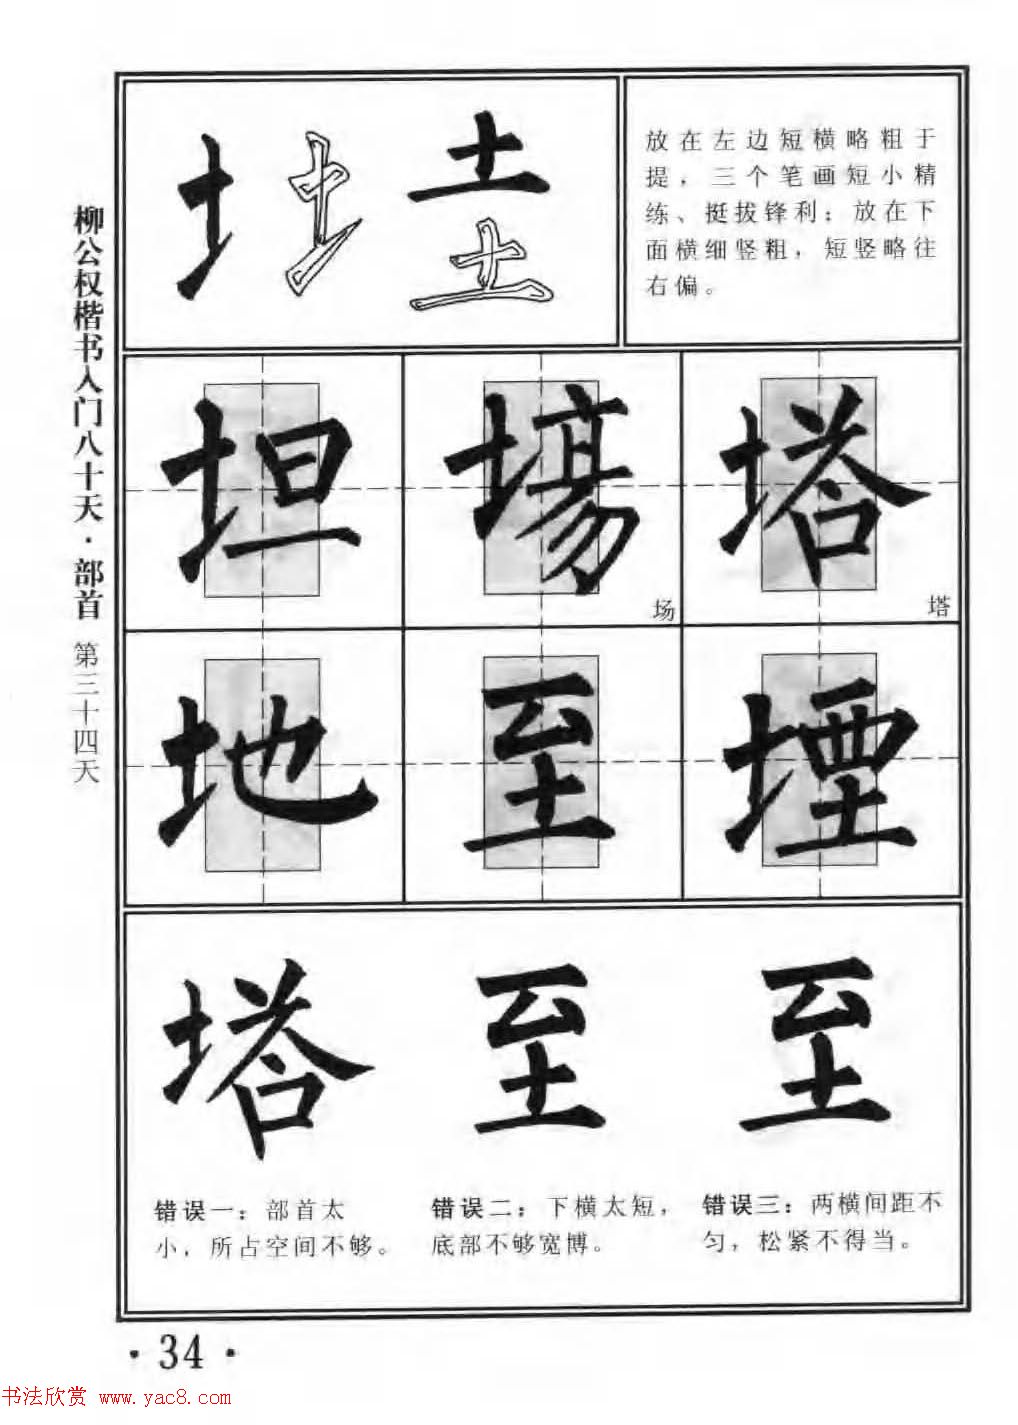 柳公权楷书入门八十天·部首 第三十四天
土 土
放在左边短横略粗于
提，三个笔画短小精
练、挺拔锋利；放在下
面横细竖粗，短竖略往
右偏。
坦 場 塔
场 塔
地 至 堙
塔 至 至
错误一：部首太
小，所占空间不够。
错误二：下横太短，
底部不够宽博。
错误三：两横间距不
匀，松紧不得当。
·34·
书法欣赏 www.yac8.com